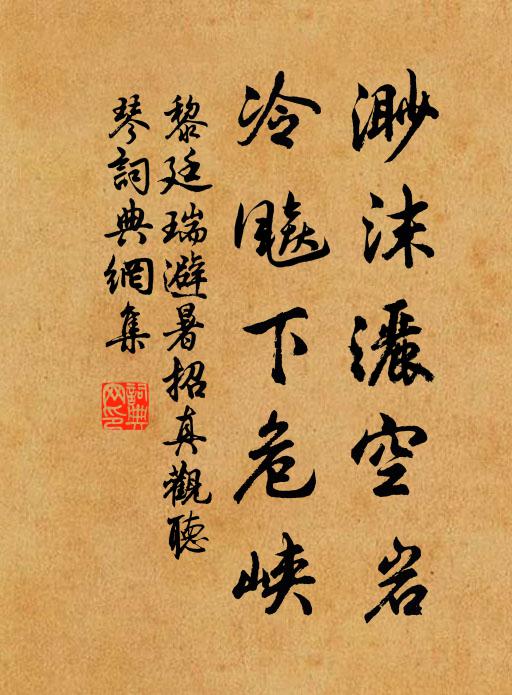 渺沫灑空岩
冷飈下危峽
黎廷瑞避暑招真觀聽
琴詞典網集
詞典網印